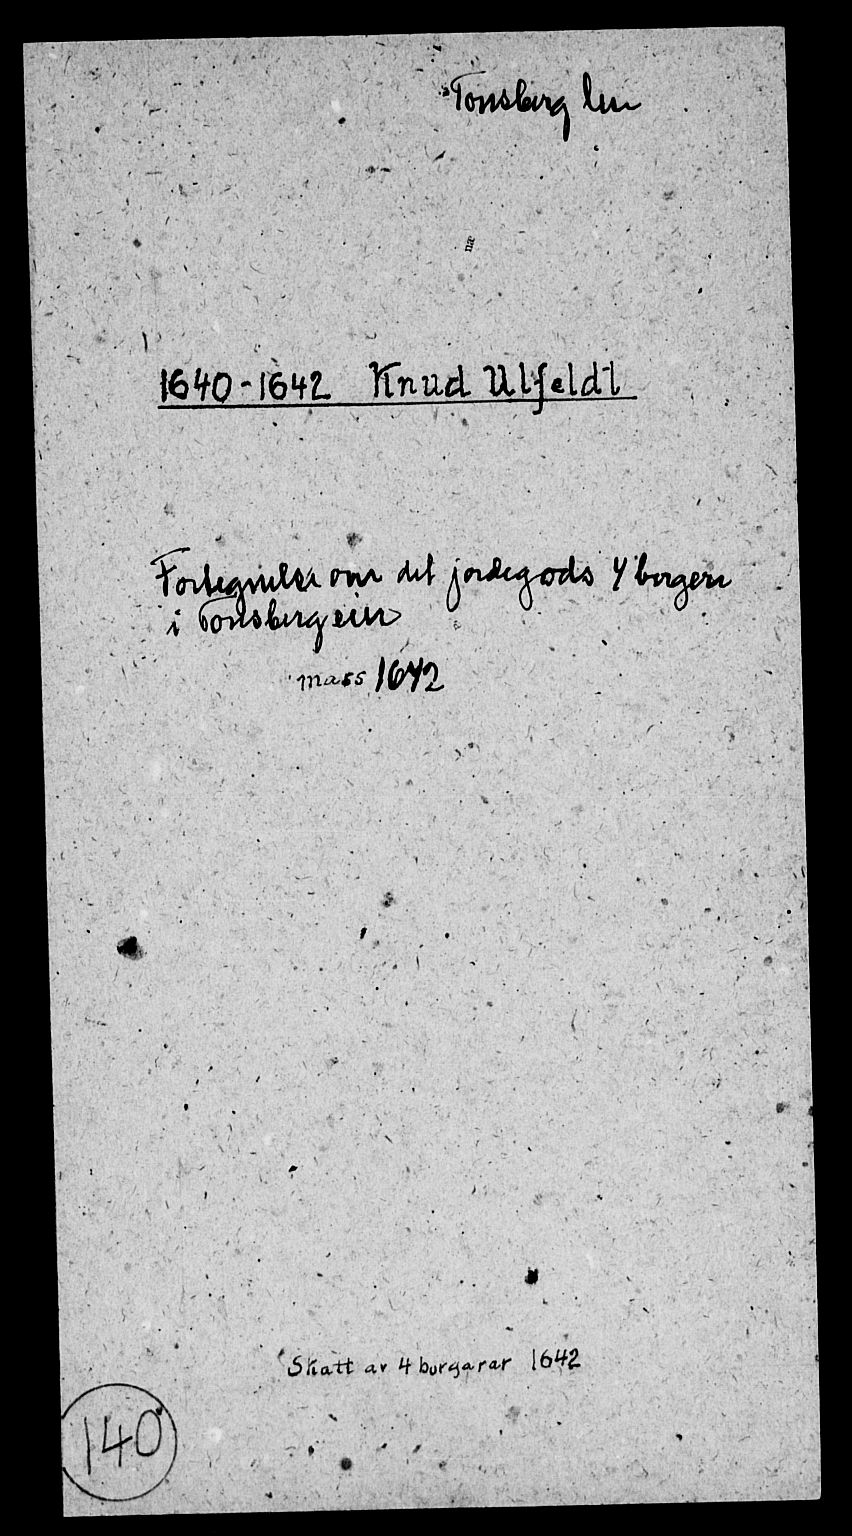 Tonsberg len
1640-1642 Knud Ulfeldt
Fortegnelse over det jordegods 4 borgere
i Tonsberg eier
mars 1642
Skatt av 4 borgarar 1642
140